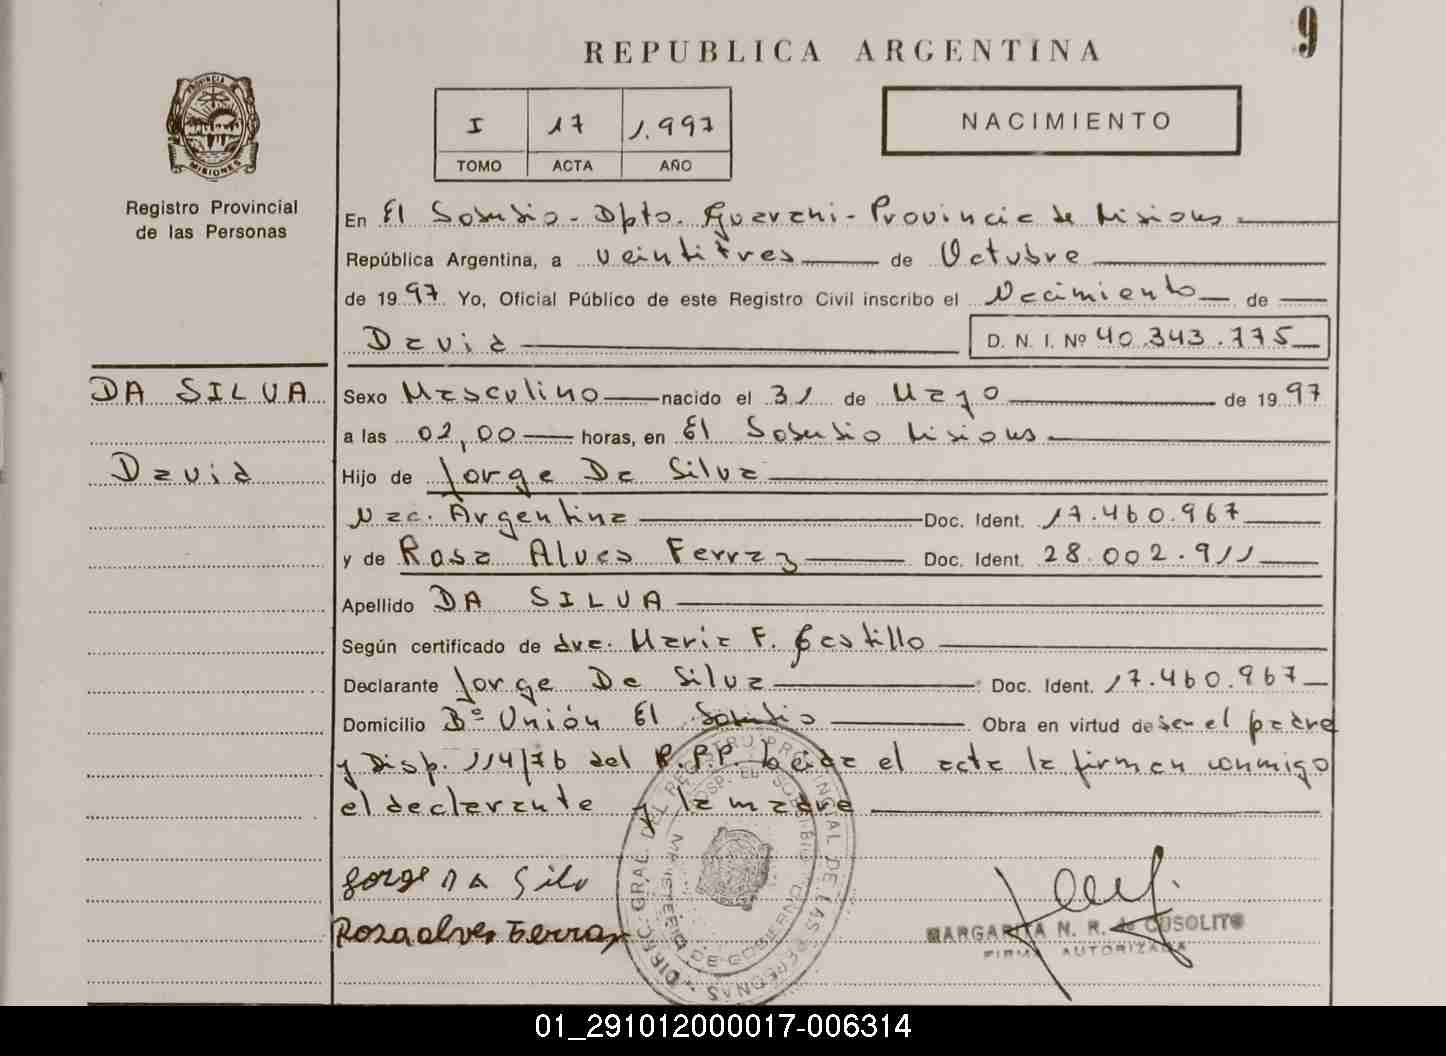 9
REPUBLICA ARGENTINA
PROVINCIA
MISIONES
Registro Provincial
de las Personas
I 17 1.997
TOMO ACTA AÑO
NACIMIENTO
En El Soberbio - Dpto. Guarani - Provincia de Misiones
República Argentina, a veintitres de Octubre
de 1997 Yo, Oficial Público de este Registro Civil inscribo el Nacimiento de
David D. N. I. Nº 40.343.775
DA SILVA
David
Sexo Masculino nacido el 31 de Mayo de 1997
a las 02,00 horas, en El Soberbio Misiones
Hijo de Jorge Da Silva
Nac. Argentina Doc. Ident. 17.460.967
y de Rosa Alves Ferraz Doc. Ident. 28.002.911
Apellido DA SILVA
Según certificado de dra. Maria F. Castillo
Declarante Jorge Da Silva Doc. Ident. 17.460.967
Domicilio Bº Unión El Soberbio Obra en virtud de ser el padre
y Disp. 114/76 del R.P.P. Leida el acta la firman conmigo
el declarante y la madre
Jorge DA Silv
Rosa alves Ferraz
DIREC. GRAL. DEL REGISTRO PROVINCIAL DE LAS PERSONAS
MINISTERIO DE GOBIERNO
DISP. EL SOBERBIO
MARGARITA N. R. de CUSOLITO
FIRMA AUTORIZADA
01_291012000017-006314